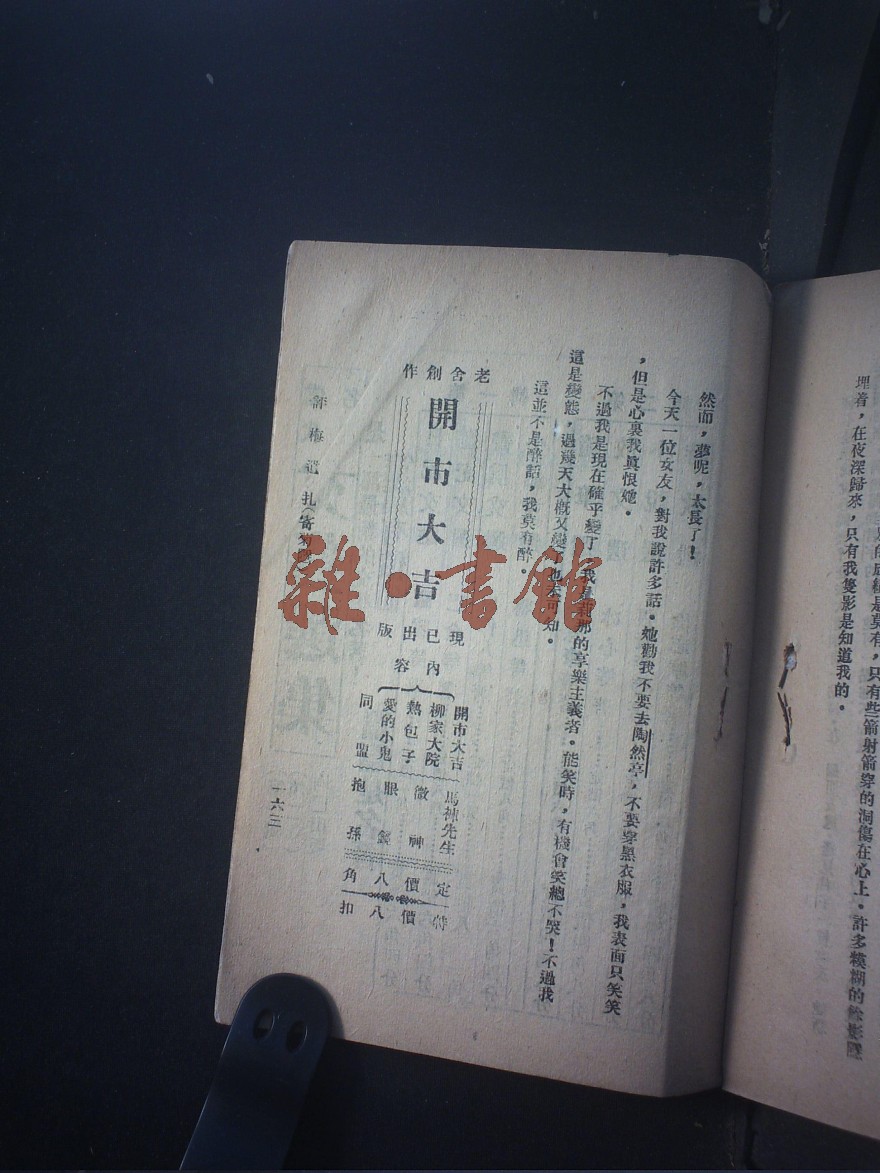 埋着，在夜深歸來，只有我隻影是知道我的。
然而，夢呢，太長了！
今天一位女友，對我說許多話。她勸我不要去陶然亭，不要穿黑衣服，我表面只笑笑
，但是心裏我眞恨她。
不過我是現在確乎變了，我是
那的享樂主義者。能笑時，有機會笑總不哭！不過我
這是變態，過幾天大概又變了也未可知。
這並不是醉話，我莫有醉。
老舍創作
開市大吉
現已出版
內容
開市大吉
柳家大院
熱包子
愛的小鬼
同盟
馬神先生
微神
眼鏡
抱孫
定價八角
特價八扣
一六三
雜·書館